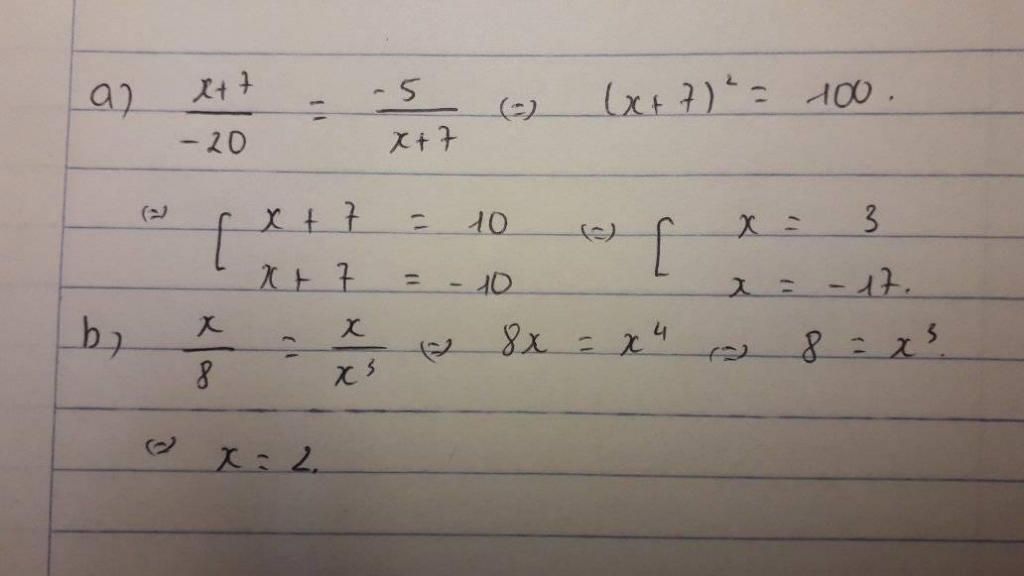 a) x+7/-20 = -5/x+7 (=) (x+7)² = 100.
(=) [ x + 7 = 10 (=) [ x = 3
x + 7 = -10 x = -17.
b) x/8 = x/x³ (=) 8x = x⁴ (=) 8 = x³.
(=) x = 2.